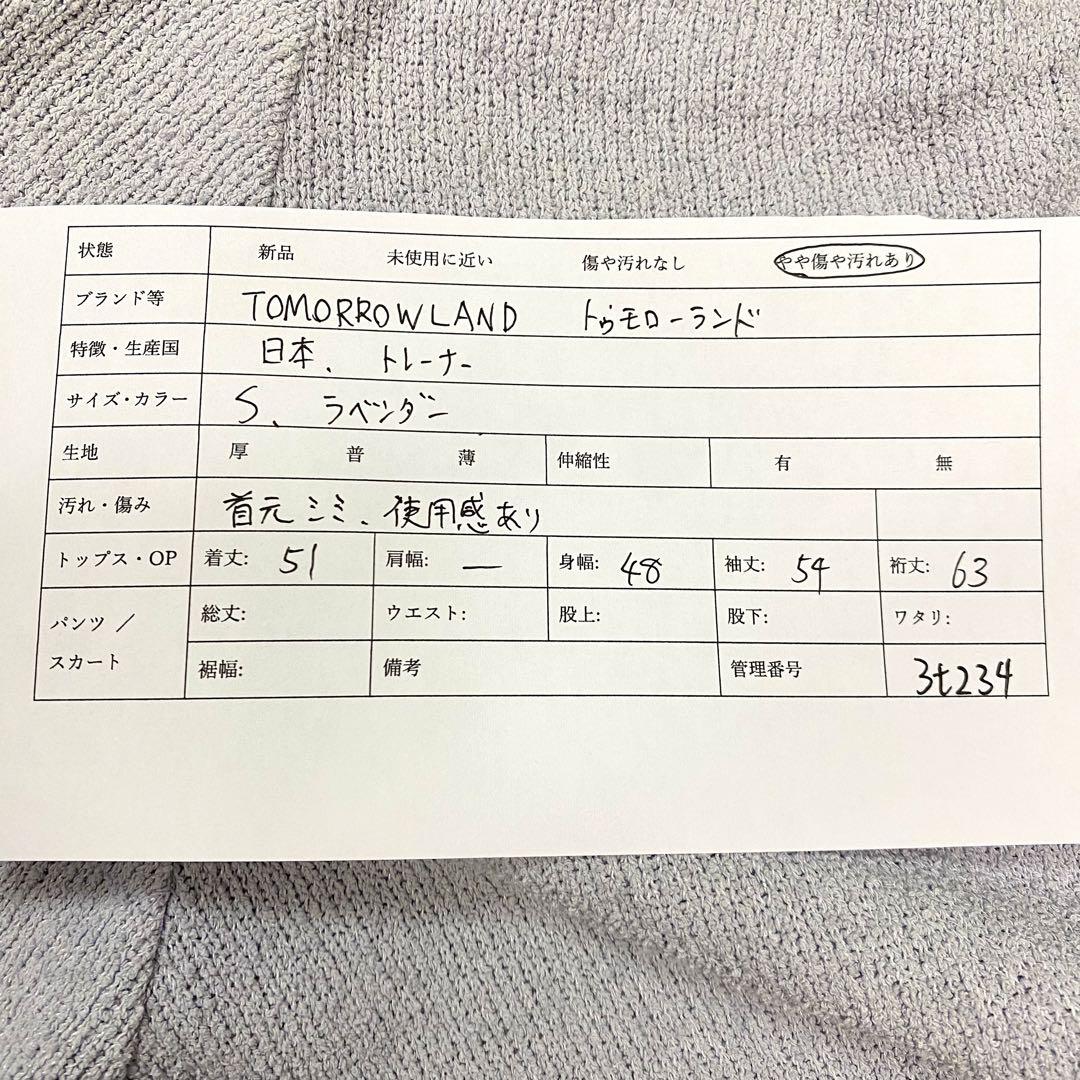 状態 新品 未使用に近い 傷や汚れなし やや傷や汚れあり
ブランド等 TOMORROWLAND トゥモローランド
特徴・生産国 日本、トレーナー
サイズ・カラー S、ラベンダー
生地 厚 普 薄 伸縮性 有 無
汚れ・傷み 首元シミ、使用感あり
トップス・OP 着丈: 51 肩幅: ー 身幅: 48 袖丈: 54 裄丈: 63
パンツ／ 総丈: ウエスト: 股上: 股下: ワタリ:
スカート 裾幅: 備考 管理番号 3t234